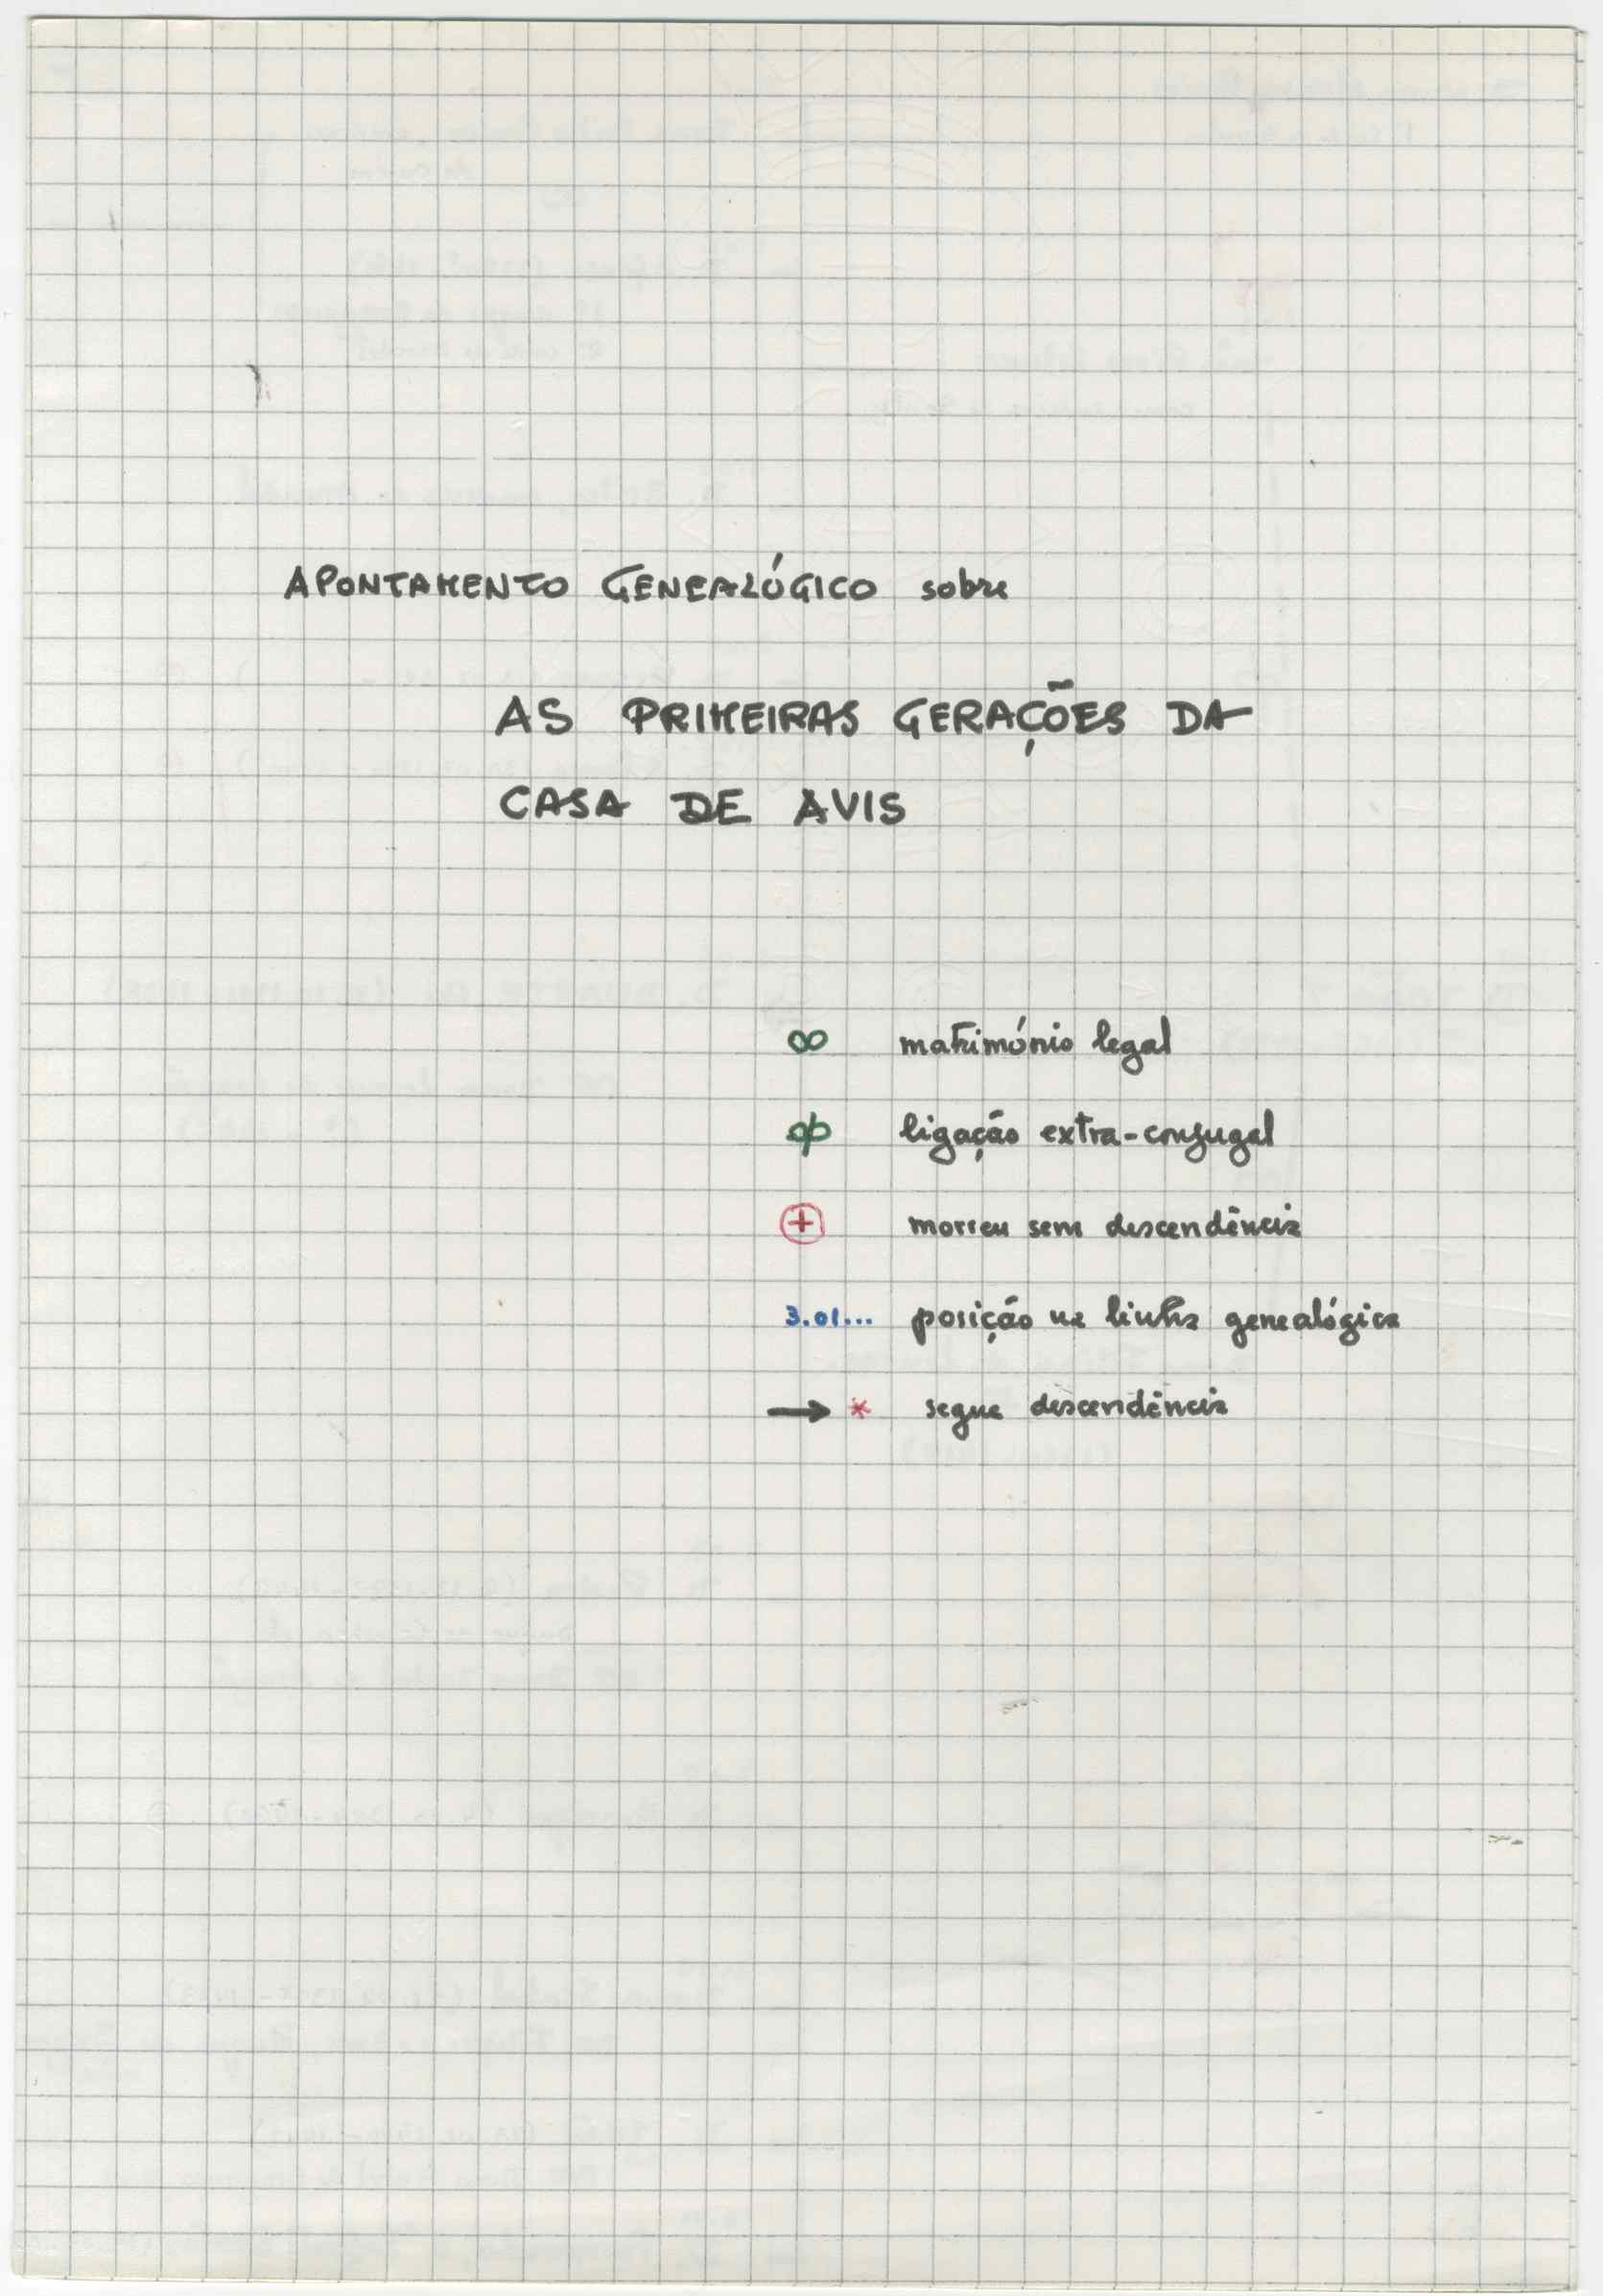 APONTAMENTO GENEALÓGICO sobre
AS PRIMEIRAS GERAÇÕES DA
CASA DE AVIS
∞ matrimónio legal
ligação extra-conjugal
⊕ morreu sem descendência
3.01... posição na linha genealógica
→ * segue descendência